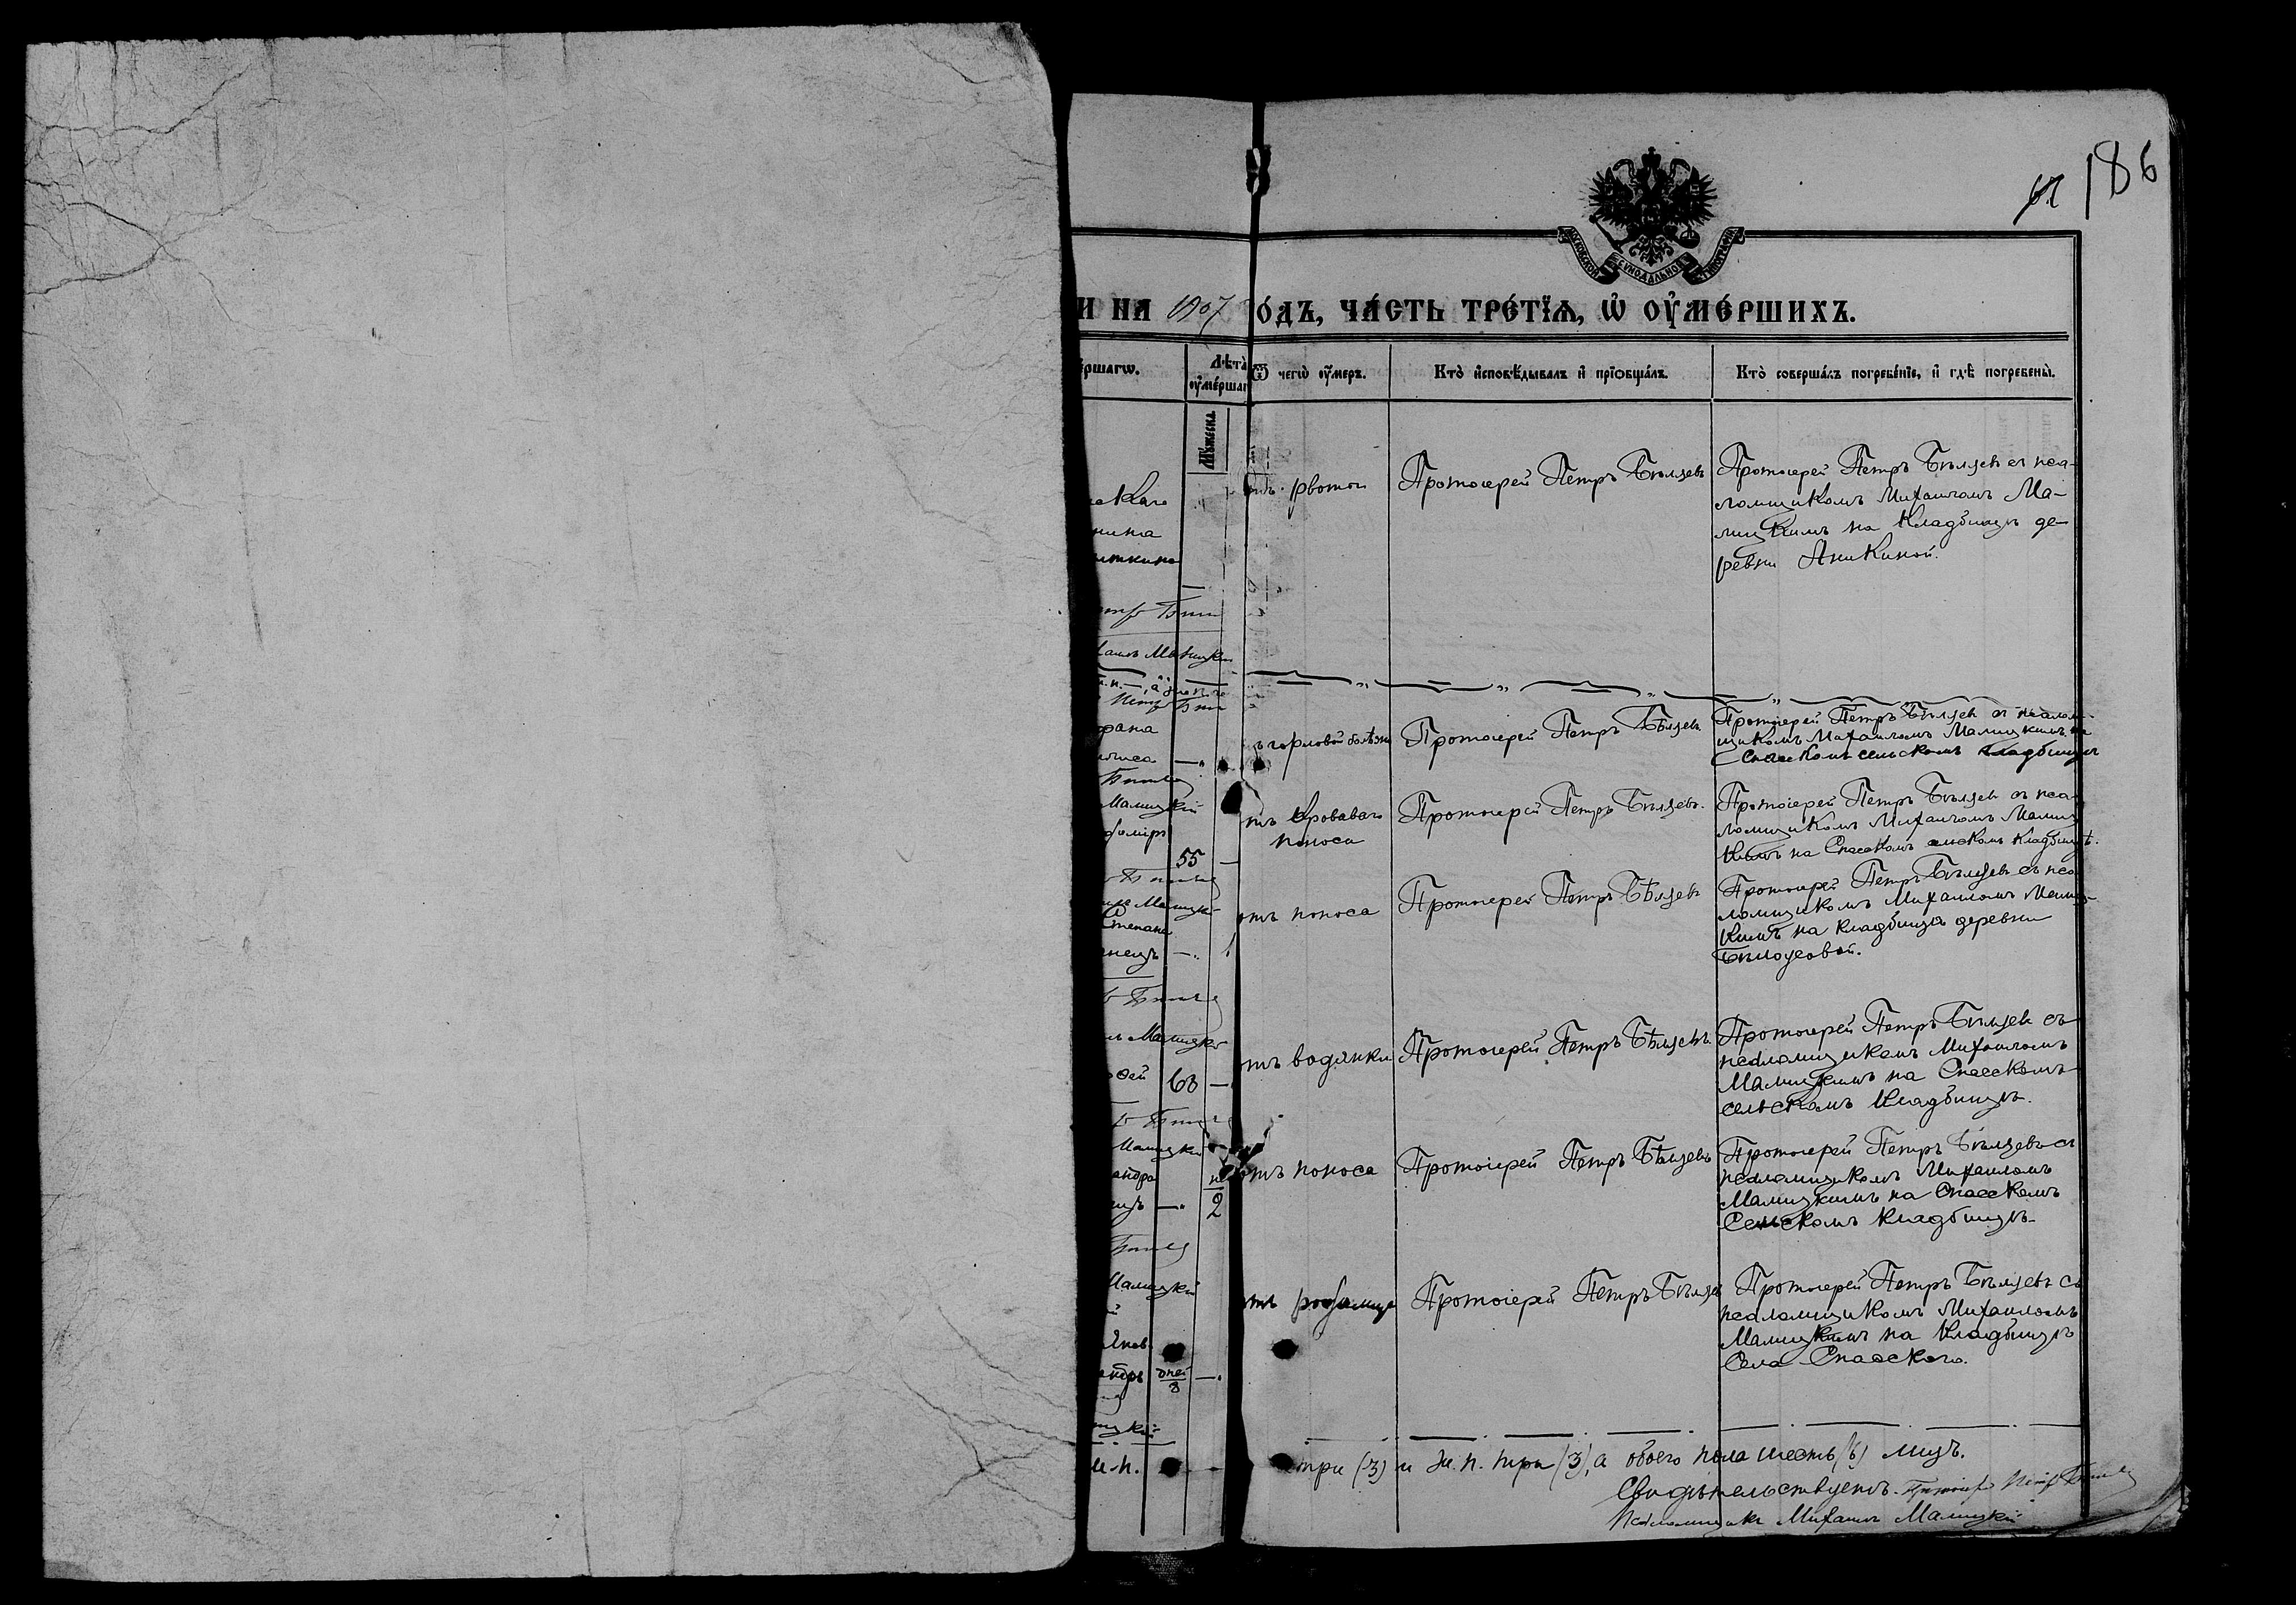 186
МОСКОВСКОЙ СѴНОДАЛЬНОЙ ТИПОГРАФІИ
И НА 1907
ОДЪ, ЧАСТЬ ТРЕТІѦ, Ѡ ОУМЕРШИХЪ.
ершагѡ.
Лѣта
оумершаг
Мужеска
Ѿ чегѡ оумеръ.
Кто исповѣдывалъ и пріобщалъ.
Кто совершалъ погребеніе, и гдѣ погребены.
отъ рвоты
Протоіерей Петръ Бѣляевъ
Протоіерей Петръ Бѣляевъ съ пса-
ломщикомъ Михаиломъ Ма-
лицкимъ на кладбищѣ де-
ревни Аникиной.
ъ горловой болѣзни
Протоіерей Петръ Бѣляевъ
Протоіерей Петръ Бѣляевъ съ псалом-
щикомъ Михаиломъ Малицкимъ на
Спасскомъ сельскомъ кладбищѣ
55
отъ кроваваго
поноса
Протоіерей Петръ Бѣляевъ.
Протоіерей Петръ Бѣляевъ съ пса-
ломщикомъ Михаиломъ Малиц
кимъ на Спасскомъ сельскомъ кладбищѣ.
Степана
отъ поноса
Протоіерей Петръ Бѣляевъ
Протоіерей Петръ Бѣляевъ съ пса
ломщикомъ Михаиломъ Малиц-
кимъ на кладбищѣ деревни
Бѣлоусовой.
63
отъ водянки
Протоіерей Петръ Бѣляевъ.
Протоіерей Петръ Бѣляевъ съ
псаломщикомъ Михаиломъ
Малицкимъ на Спасскомъ
сельскомъ кладбищѣ.
2
отъ поноса
Протоіерей Петръ Бѣляевъ
Протоіерей Петръ Бѣляевъ съ
псаломщикомъ Михаиломъ
Малицкимъ на Спасскомъ
Сельскомъ кладбищѣ.
дней
8
отъ родимца
Протоіерей Петръ Бѣляев
Протоіерей Петръ Бѣляевъ съ
псаломщикомъ Михаиломъ
Малицкимъ на кладбищѣ
Села Спасскаго.
м.п.
три (3) и ж.п. три (3), а обоего пола шесть (6) лицъ.
Свидѣтельствуетъ Протоіер Петръ Бѣляев
Псаломщикъ Михаилъ Малицкій